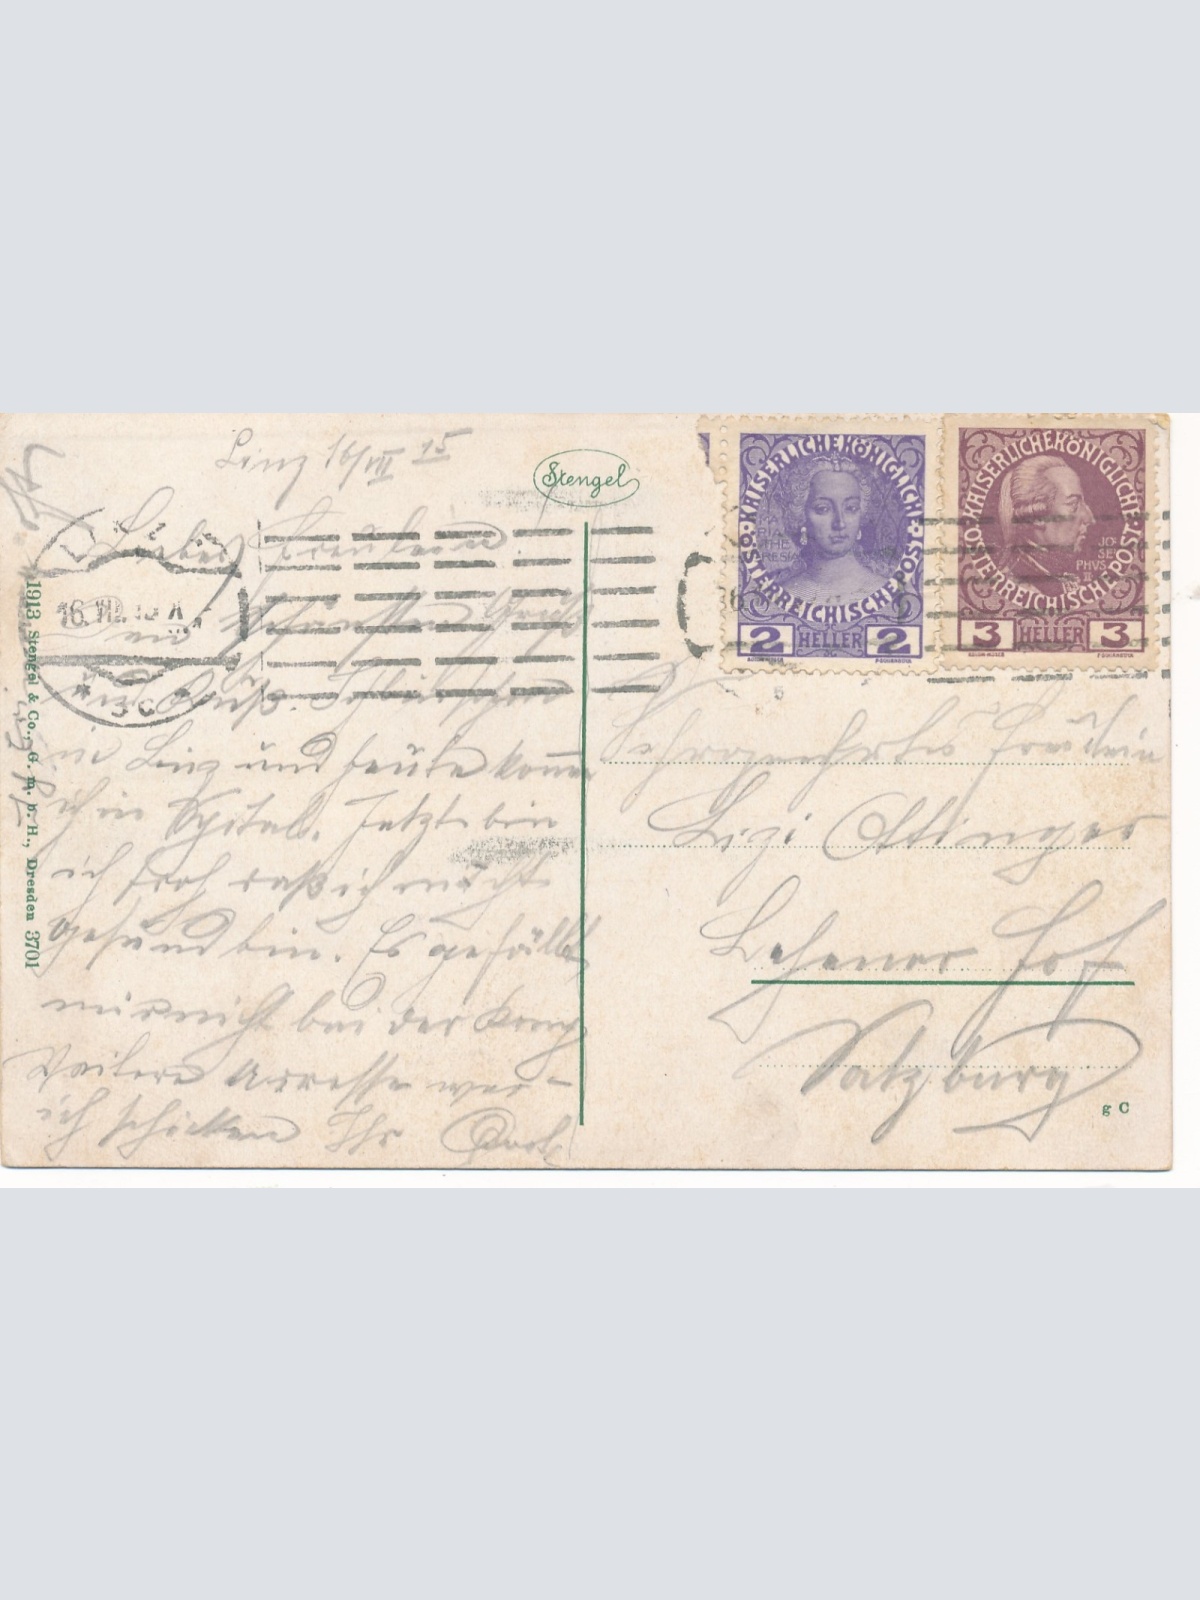 Linz 16/VIII 15
Stengel
Liebes Fräulein.
Gruß
und Kuß.
in Linz und heute komme
ich in Spital. Jetzt bin
ich froh daß ich nicht
gesund bin. Es gefällt
mir nicht bei der Komp
Weitere Adresse wer-
ich schicken Ihr
KAISERLICHE KÖNIGLICHE
ÖSTERREICHISCHE POST
MARIA THERESIA
2 HELLER 2
KAISERLICHE KÖNIGLICHE
ÖSTERREICHISCHE POST
JOSEPHVS II
3 HELLER 3
LINZ
16. VIII. 15 X
3 C
Fräulein
Lizi Ottinger
Lehener Hof
Salzburg
g C
1913 Stengel & Co., G. m. b. H., Dresden 3701